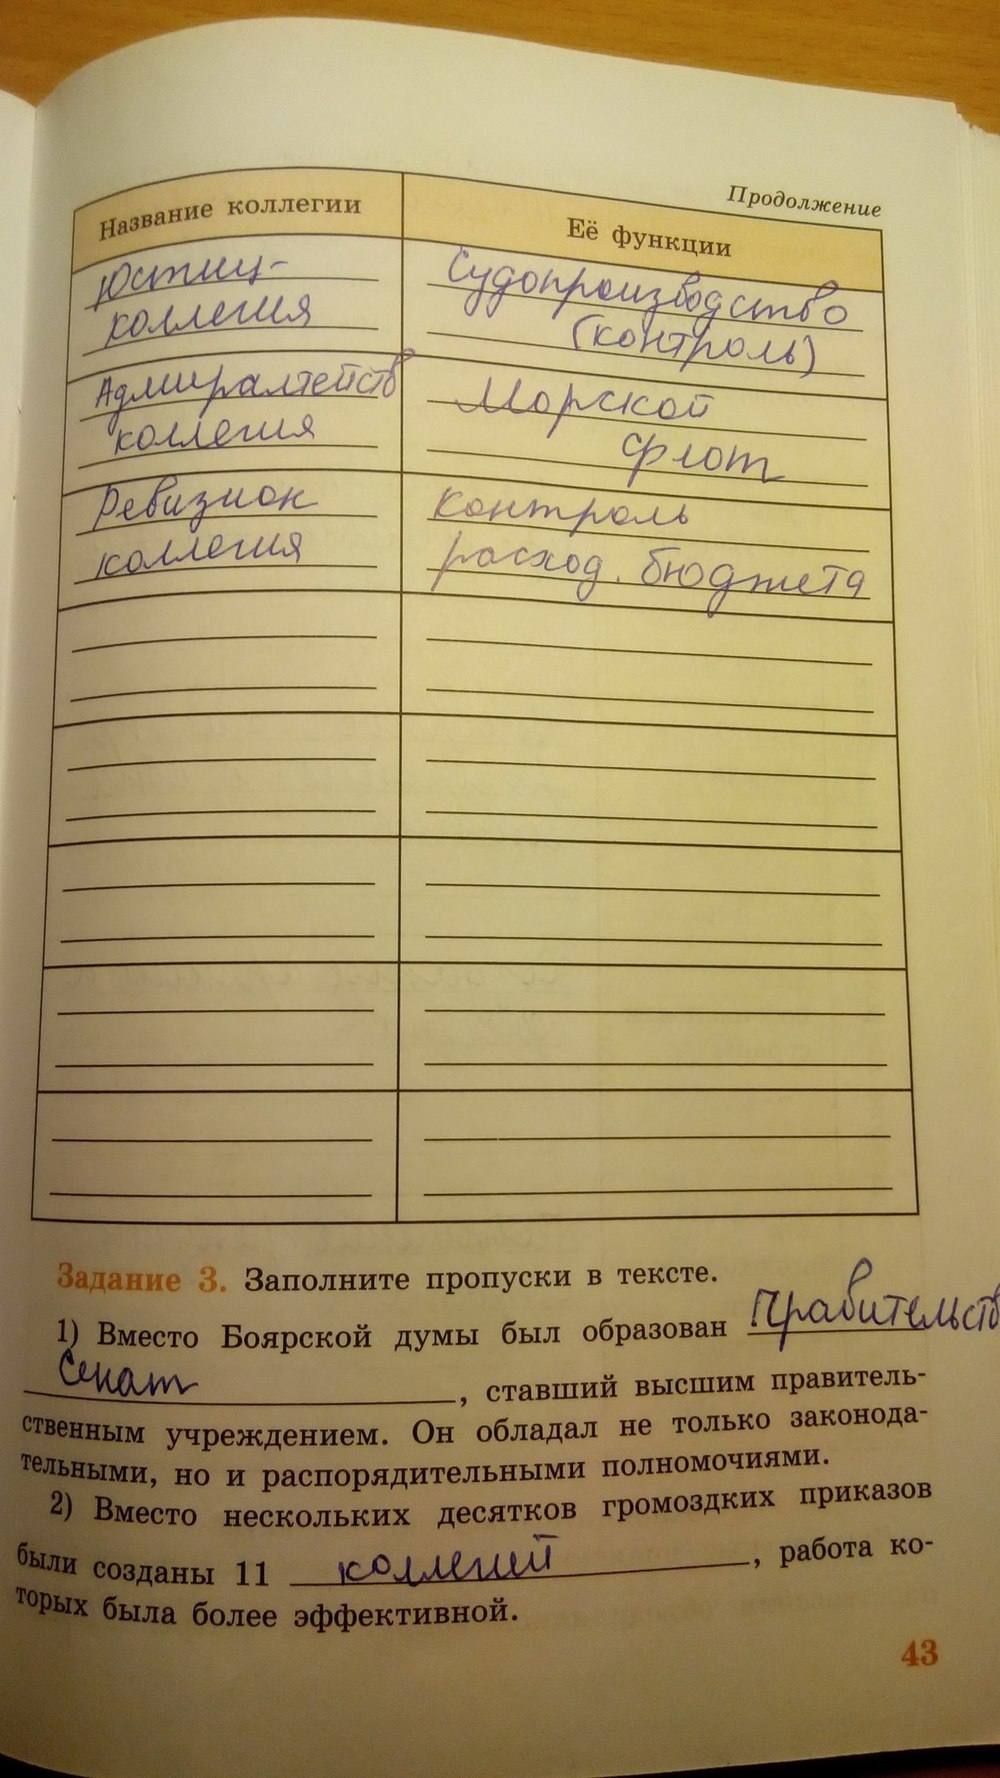 Продолжение
Название коллегии
Её функции
Юстиц-
коллегия
Судопроизводство
(контроль)
Адмиралтейств
коллегия
Морской
флот
Ревизион
коллегия
контроль
расход. бюджета
Задание 3. Заполните пропуски в тексте.
1) Вместо Боярской думы был образован Правительств
Сенат, ставший высшим правитель-
ственным учреждением. Он обладал не только законода-
тельными, но и распорядительными полномочиями.
2) Вместо нескольких десятков громоздких приказов
были созданы 11 коллегий, работа ко-
торых была более эффективной.
43